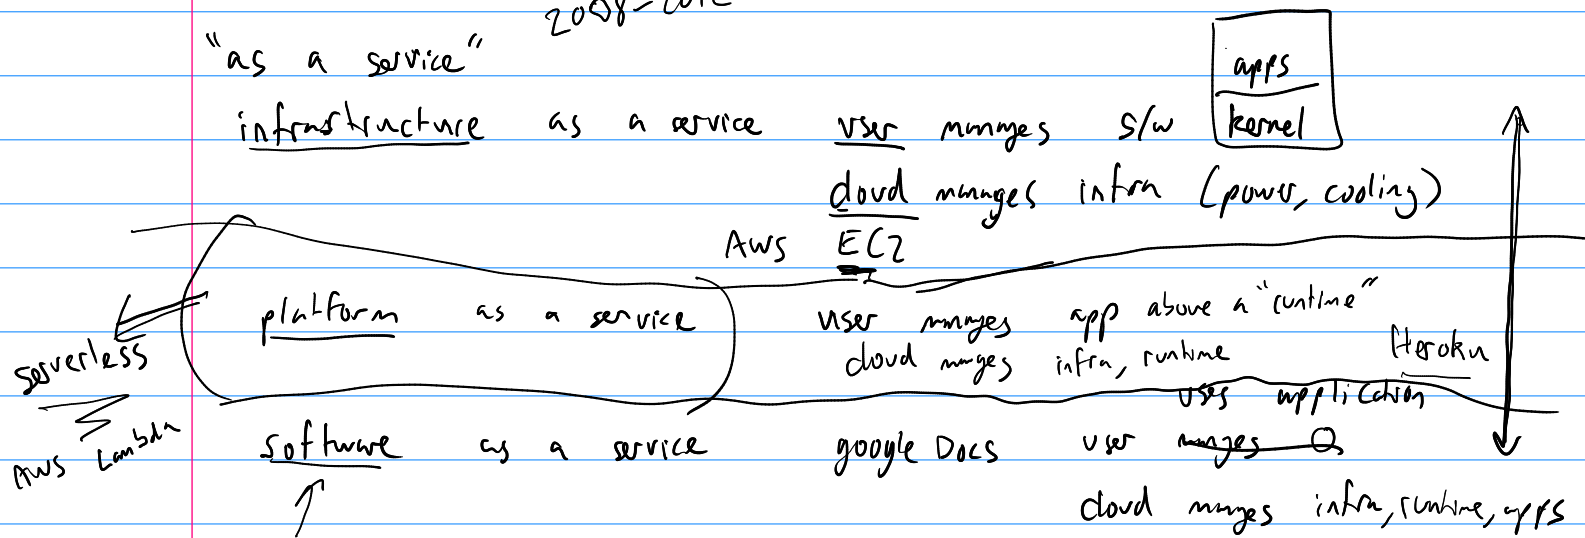 2008-2012
"as a service"
apps
kernel
infrastructure as a service user manages s/w
cloud manages infra (power, cooling)
AWS EC2
platform as a service user manages app above a "runtime"
cloud manages infra, runtime
Heroku
serverless
AWS Lambda
uses application
software as a service google Docs user manages
cloud manages infra, runtime, apps